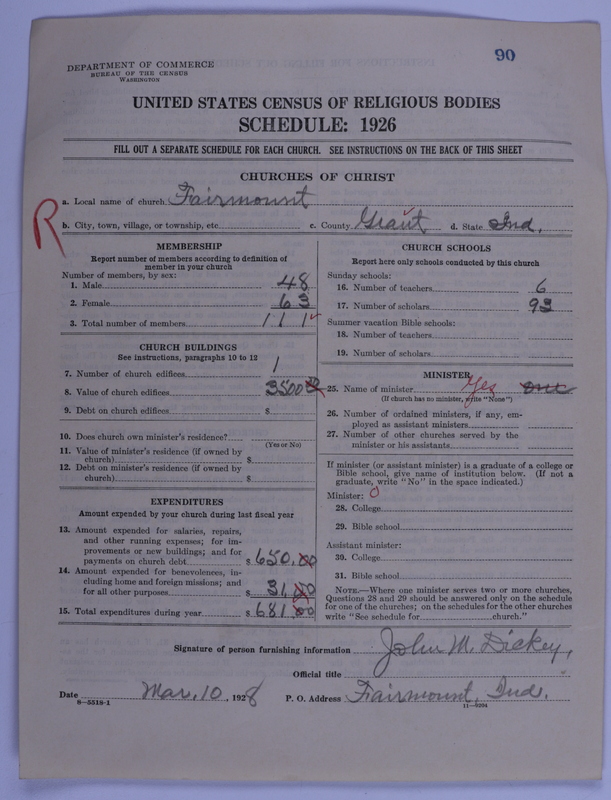 90
DEPARTMENT OF COMMERCE
BUREAU OF THE CENSUS
WASHINGTON
UNITED STATES CENSUS OF RELIGIOUS BODIES
SCHEDULE: 1926
FILL OUT A SEPARATE SCHEDULE FOR EACH CHURCH. SEE INSTRUCTIONS ON THE BACK OF THIS SHEET
CHURCHES OF CHRIST
R
a. Local name of church Fairmount
b. City, town, village, or township, etc. c. County Grant d. State Ind.
MEMBERSHIP
Report number of members according to definition of
member in your church
Number of members, by sex:
1. Male 48
2. Female 63
3. Total number of members 111
CHURCH BUILDINGS
See instructions, paragraphs 10 to 12
7. Number of church edifices 1
8. Value of church edifices 3500
9. Debt on church edifices $
10. Does church own minister's residence?
(Yes or No)
11. Value of minister's residence (if owned by
church) $
12. Debt on minister's residence (if owned by
church) $
EXPENDITURES
Amount expended by your church during last fiscal year
13. Amount expended for salaries, repairs,
and other running expenses; for im-
provements or new buildings; and for
payments on church debt $ 650.00
14. Amount expended for benevolences, in-
cluding home and foreign missions; and
for all other purposes 31.00
15. Total expenditures during year $ 681.00
CHURCH SCHOOLS
Report here only schools conducted by this church
Sunday schools:
16. Number of teachers 6
17. Number of scholars 93
Summer vacation Bible schools:
18. Number of teachers
19. Number of scholars
MINISTER
25. Name of minister Yes one
(If church has no minister, write "None")
26. Number of ordained ministers, if any, em-
ployed as assistant ministers
27. Number of other churches served by the
minister or his assistants
If minister (or assistant minister) is a graduate of a college or
Bible school, give name of institution below. (If not a
graduate, write "No" in the space indicated.)
Minister: 0
28. College
29. Bible school
Assistant minister:
30. College
31. Bible school
NOTE.—Where one minister serves two or more churches,
Questions 28 and 29 should be answered only on the schedule
for one of the churches; on the schedules for the other churches
write "See schedule for church."
Signature of person furnishing information John M. Dickey,
Official title
Date Mar. 10, 1928 P. O. Address Fairmount, Ind.
8—5518-1 11—9204